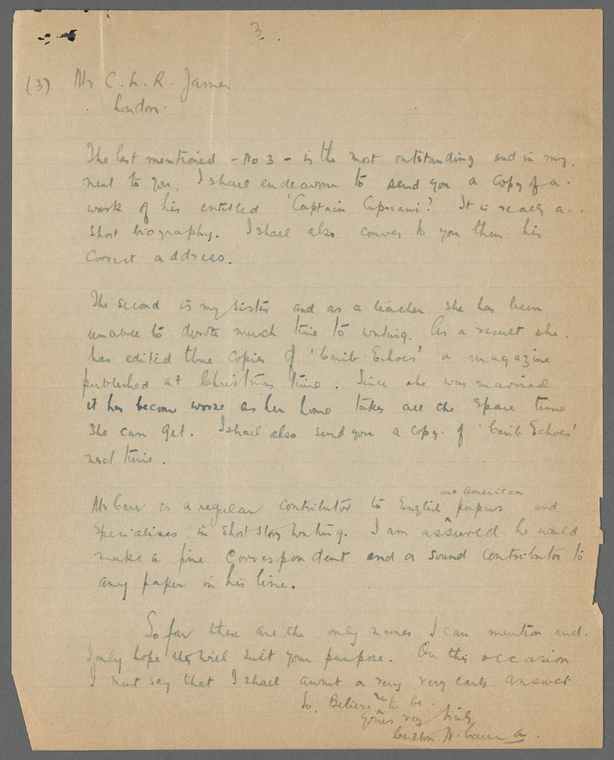 3.
(3) Mr C. L. R. James
London.
The last mentioned - No 3 - is the most outstanding and in my
next to you, I shall endeavour to send you a copy of a
work of his entitled 'Captain Cipriani'. It is really a
short biography. I shall also convey to you then his
correct address.
The second is my sister and as a teacher she has been
unable to devote much time to writing. As a result she
has edited three copies of 'Carib Echoes' a magazine
published at Christmas time. Since she was married
it has become worse as her home takes all the spare time
she can get. I shall also send you a copy of 'Carib Echoes'
next time.
and American
Mr Carr is a regular contributor to English papers and
specialises in short story writing. I am assured he would
make a fine correspondent and a sound contributor to
any paper in his line.
So far these are the only names I can mention and
I only hope they will suit your purpose. On this occasion
I must say that I shall await a very very early answer
So, Believe me to be
Yours very truly